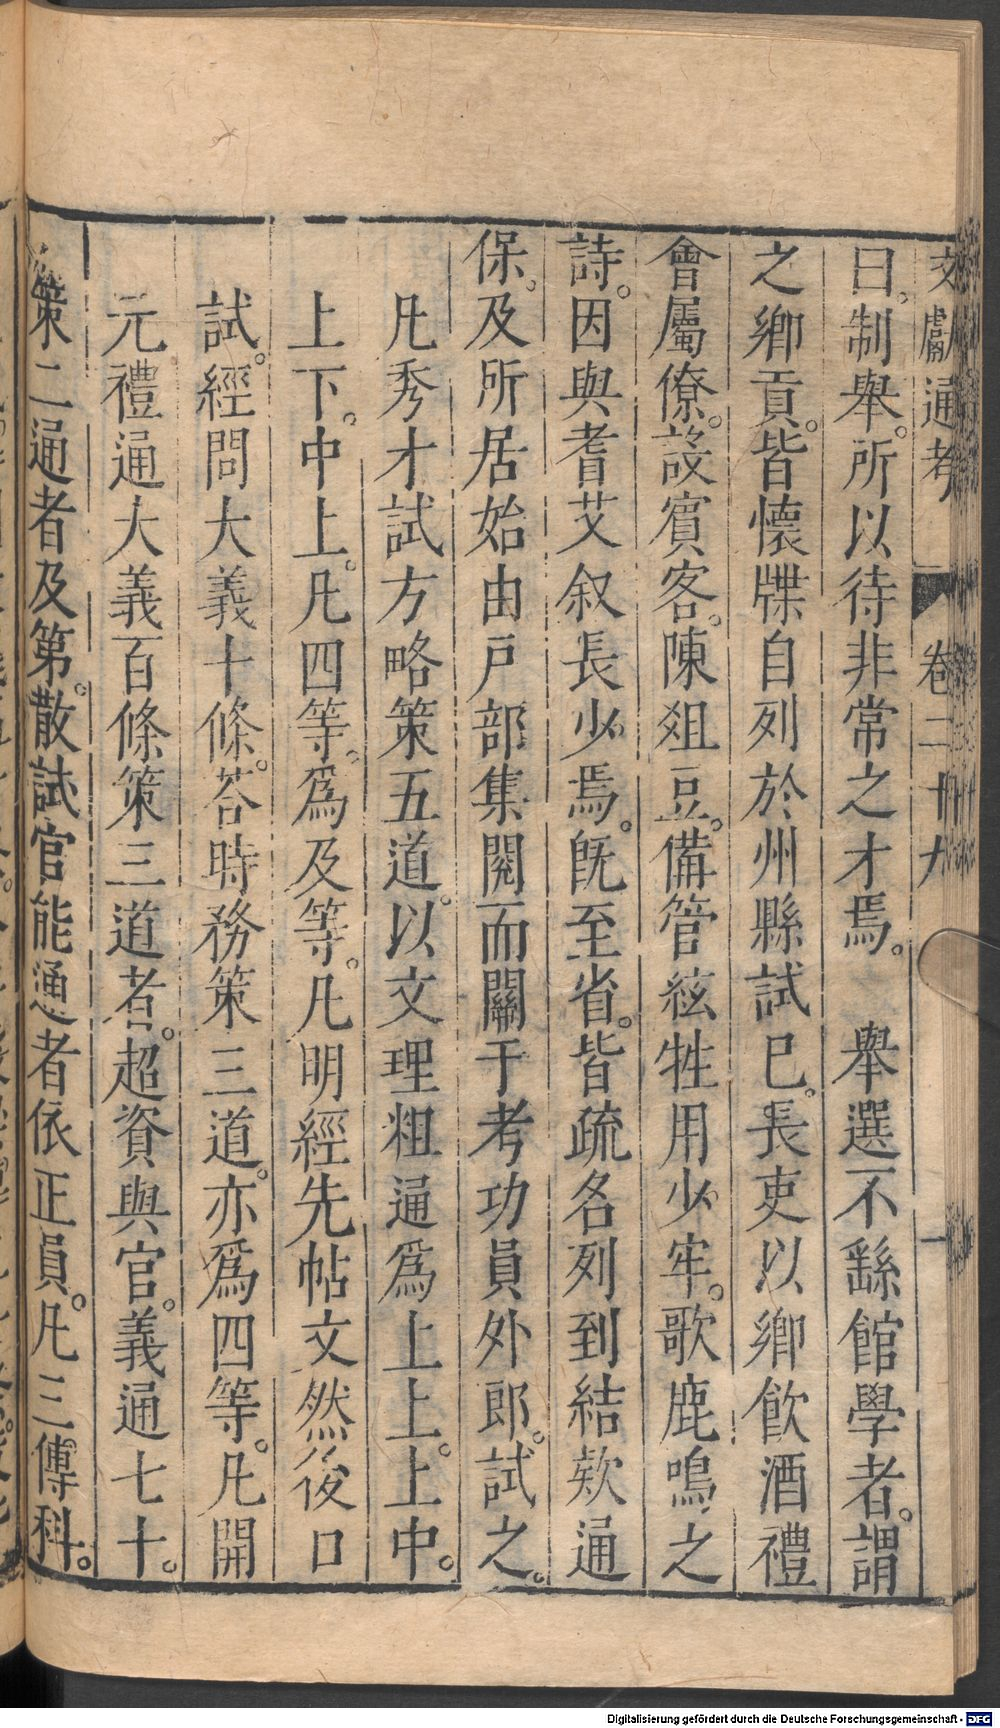 文獻通考 卷二十九 一
曰。制舉。所以待非常之才焉。 舉選不繇館學者。謂
之鄉貢。皆懷牒自列於州縣試已。長吏以鄉飲酒禮
會屬僚。設賓客。陳俎豆。備管絃牲用少牢。歌鹿鳴之
詩。因與耆艾叙長少焉。旣至省。皆疏名列到結欵通
保。及所居始由戶部集閱而關于考功員外郎。試之。
凡秀才試方略策五道。以文理粗通爲上上。上中。
上下。中上。凡四等。爲及等。凡明經先帖文然後口
試。經問大義十條。荅時務策三道。亦爲四等。凡開
元禮通大義百條策三道者。超資與官。義通七十。
策二通者及第。散試官能通者依正員。凡三傳科。
Digitalisierung gefördert durch die Deutsche Forschungsgemeinschaft - DFG